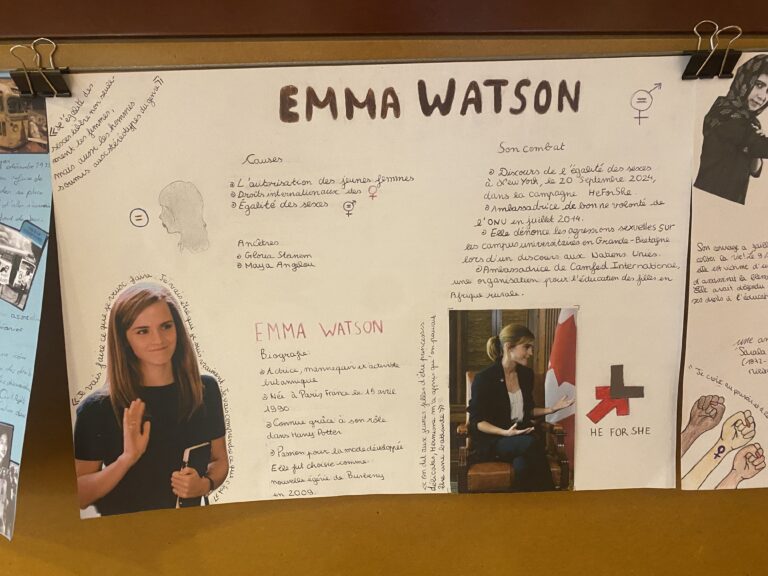 EMMA WATSON
"L'égalité des
sexes libère non seule-
ment les femmes,
mais aussi les hommes
soumis aux stéréotypes du genre"
Causes
L'autorisation des jeunes femmes
Droits internationaux des ♀
Égalité des sexes
=
Ancêtres
Gloria Steinem
Maya Angelou
Son combat
Discours de l'égalité des sexes
à New York, le 20 Septembre 2024,
dans la campagne HeForShe
Ambassadrice de bonne volonté de
l'ONU en juillet 2014.
Elle dénonce les agressions sexuelles sur
les campus universitaires en Grande-Bretagne
lors d'un discours aux Nations Unies.
Ambassadrice de Camfed International,
une organisation pour l'éducation des filles en
Afrique rurale.
EMMA WATSON
Biografie:
Actrice, mannequin et activiste
britannique
Née à Paris France le 15 avril
1990
Connue grâce à son rôle
dans Harry Potter
Passion pour la mode développée
Elle fut choisie comme
nouvelle égérie de Burberry
en 2009.
Je vais faire ce que je veux faire. Je vais être qui je suis vraiment. Je vais
"On dit aux jeunes filles d'être princesses
délicates, Hermione m'a appris qu'on pouvait
être une battante"
HE FOR SHE